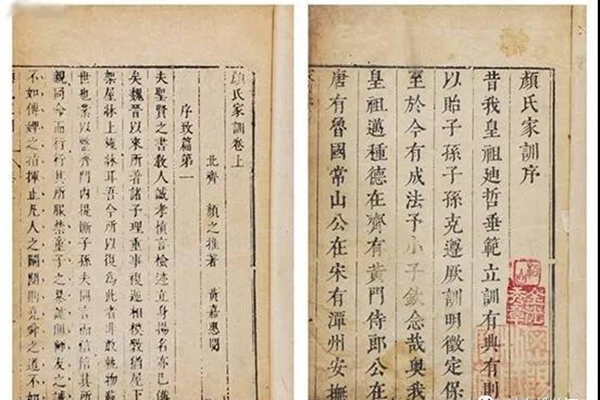 顏氏家訓序
昔我皇祖廸哲垂範立訓有典有則
以貽子孫子孫克遵厥訓明徵定保
至於今有成法予小子欽念哉奥我
皇祖邁種德在齊有黃門侍郎公在
唐有魯國常山公在宋有潭州安撫
顏氏家訓卷上
北齊 顏之推著 黃嘉惠閱
序致篇第一
夫聖賢之書教人誠孝慎言檢迹立身揚名亦已備
矣魏晉以來所著諸子理重事複遞相模斆猶屋下
架屋牀上施牀耳吾今所以復為此者非敢軌物
世也業以整齊門內提撕子孫夫同言而信信其所
親同命而行行其所服禁童子之暴謔則師友之誡
不如傅婢之指揮止凡人之鬬鬩則堯舜之道不如